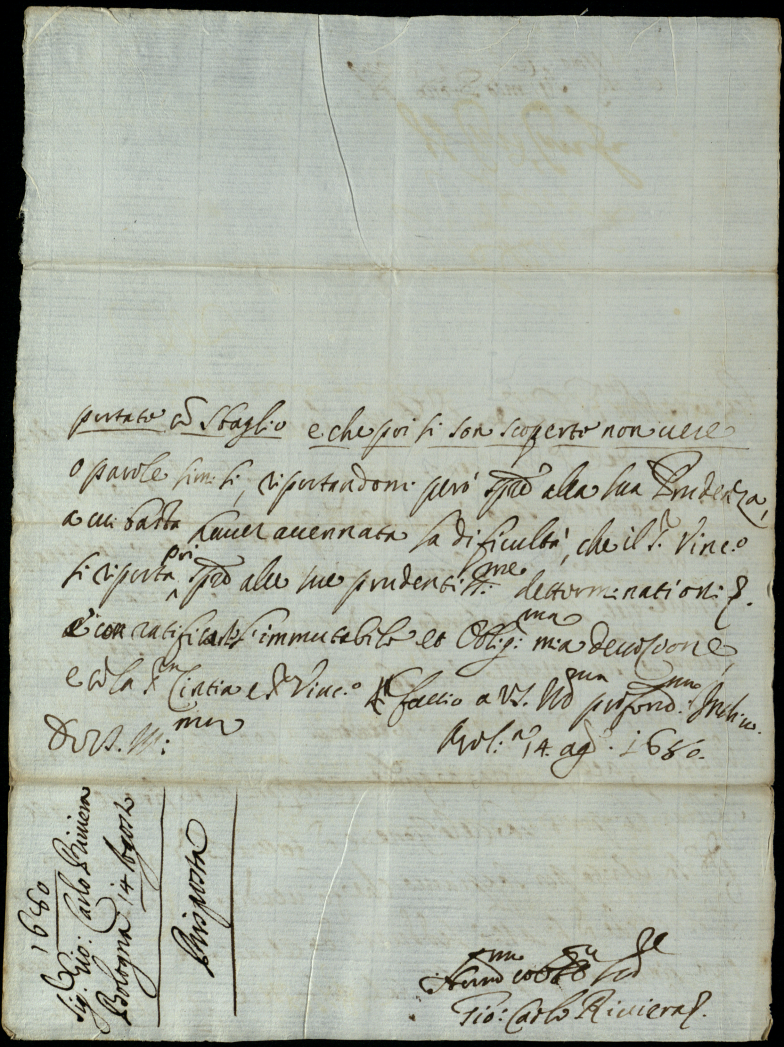 portate cō sbaglio e che poi si son scoperte non uere
o parole simili, riportandomi però sēpre alla sua Prudenza,
a cui basta hauer accennata la dificultà, che il S.r Vinc.o
si riporta sēpre alle sue prudentiss.me determinationi
e con ratificarle l'immutabile et Oblig.ma mia deuotione,
e cō la S.ra Cintia e S.r Vinc.o faccio a VS. Ill.ma profond.ma Inchino.
Di VS. Ill.ma Bol.a 14 ag.o 1680.
Gio: Carlo Riuiera
1680
Sig.r Gio: Carlo Riuiera
Bologna 14 Agosto
Risposta